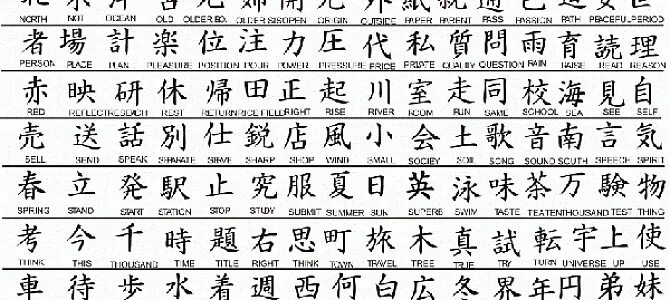 NORTH NOT OCEAN OLD OLDER BO. OLDER SIS OPEN ORIGIN OUTSIDE PAPER PARENT PASS PASSION PATH PEACEFUL PERIOD
者 場 計 楽 位 注 力 圧 代 私 質 問 雨 育 読 理
PERSON PLACE PLAN PLEASURE POSIT POUR POWER PRESSURE PRICE PRIVATE QUALITY QUESTION RAIN RAISE READ REASON
赤 映 研 休 帰 田 正 起 川 室 走 同 校 海 見 自
RED REFLECT RESEACH REST RETURN RICE FIELD RIGHT RISE RIVER ROOM RUN SAME SCHOOL SEA SEE SELF
売 送 話 別 仕 鋭 店 風 小 会 土 歌 音 南 言 気
SELL SEND SPEAK SEPARATE SERVE SHARP SHOP WIND SMALL SOCIEY SOIL SONG SOUND SOUTH SPEECH SPIRIT
春 立 発 駅 止 究 服 夏 日 英 泳 味 茶 万 験 物
SPRING STAND START STATION STOP STUDY SUBMIT SUMMER SUN SUPERB SWIM TASTE TEA TENTHOUSAND TEST THING
考 今 千 時 題 右 思 町 旅 木 真 試 転 宇 上 使
THINK THIS THOUSAND TIME TITLE RIGHT THINK TOWN TRAVEL TREE TRUE TRY TURN UNIVERSE UP USE
車 待 歩 水 着 週 西 何 白 広 冬 界 年 円 弟 妹